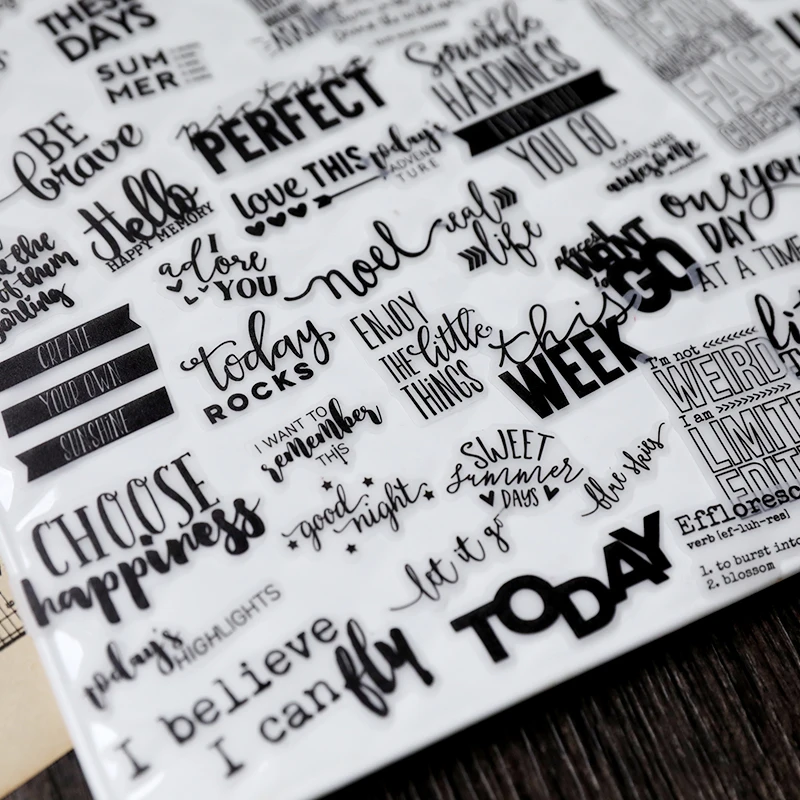 THESE
DAYS
SUM
MER
BE
brave
picture
PERFECT
Sprinkle
HAPPINESS
YOU GO.
Hello
HAPPY MEMORY
love THIS
today's
ADVEN
TURE
today was
awesome
the
of them
darling
I
adore
YOU
noel
real
life
places I
WANT
to
GO
only you
DAY
AT A TIME
CREATE
YOUR OWN
SUNSHINE
today
ROCKS
ENJOY
THE little
THINGS
this
WEEK
I'm not
WEIRD
I am
LIMITED
EDITI
I WANT TO
remember
THIS
SWEET
summer
DAYS
blue skies
CHOOSE
happiness
good
night
let it go
TODAY
Effloresc
verb [ef-luh-res]
1. to burst into
2. blossom
today's
HIGHLIGHTS
I believe
I can fly
HEART
FACE